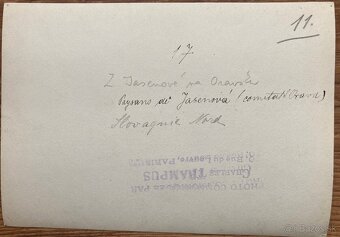 11.
17
Z Jasenové na Oravsku
Paysans de Jasenová (comitat Orava)
Slovaquie Nord
PHOTO COMMUNIQUÉE PAR
CHARLES TRAMPUS
Rue du Louvre, PARIS